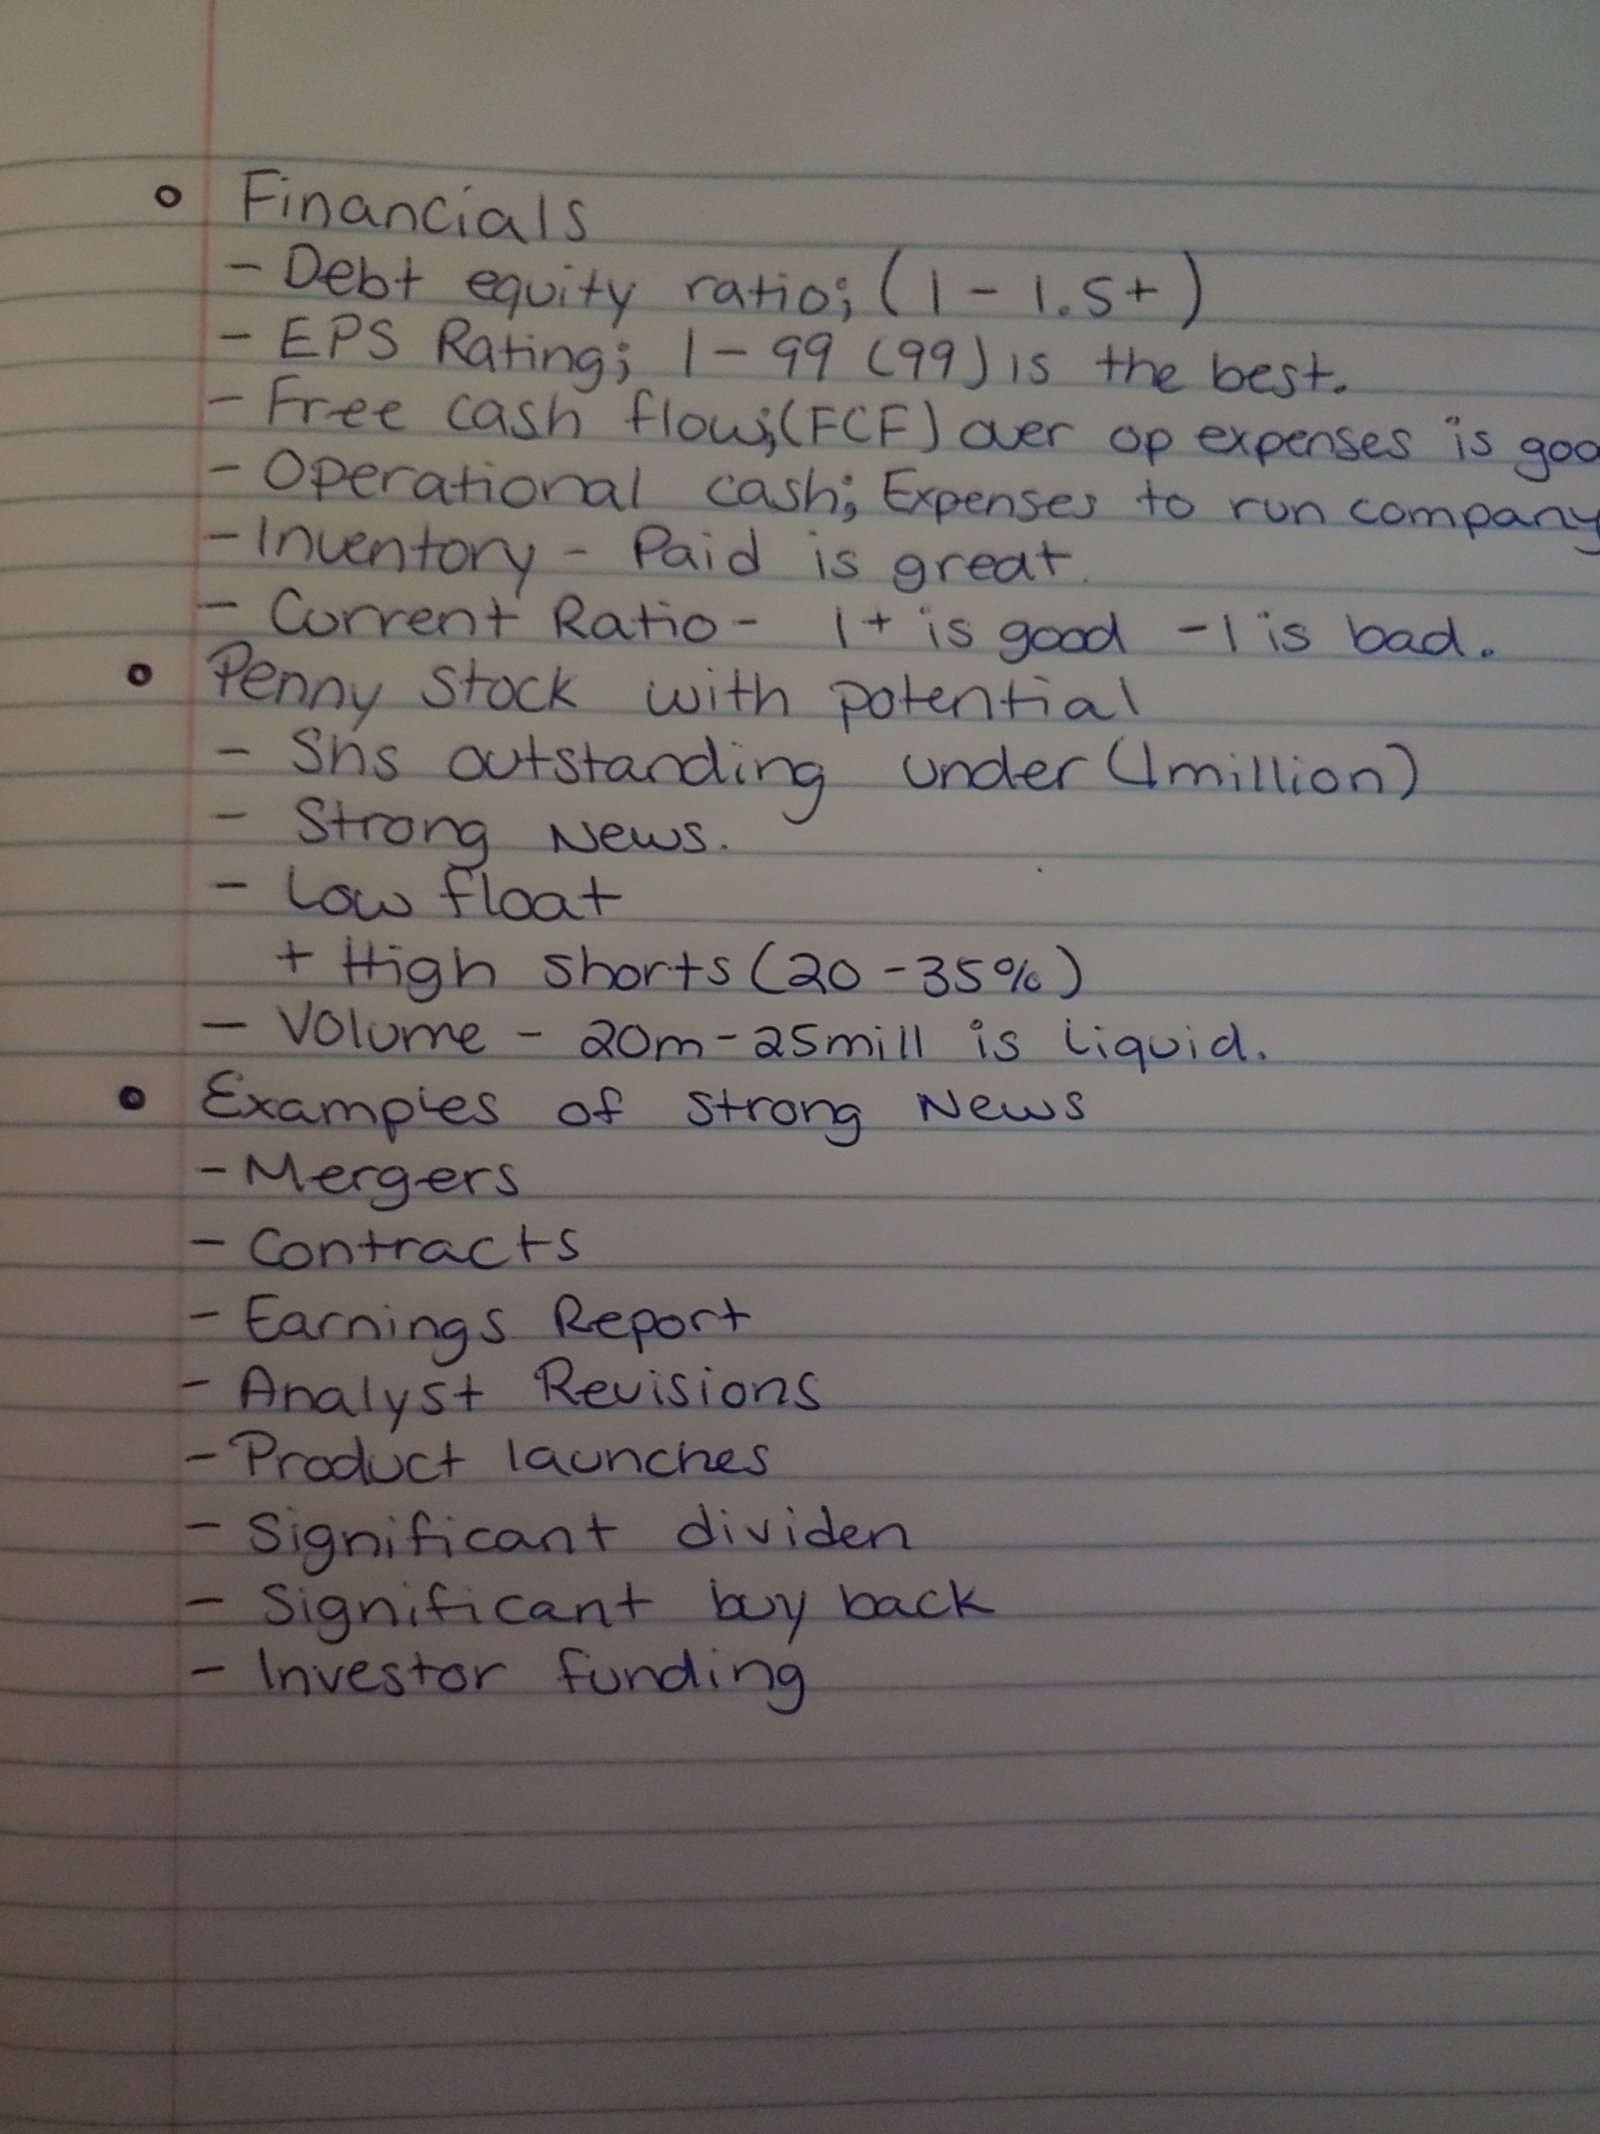 • Financials
- Debt equity ratio; (1 - 1.5+)
- EPS Rating; 1 - 99 (99) is the best.
- Free cash flow;(FCF) over op expenses is goo
- Operational cash; Expenses to run company
- Inventory - Paid is great.
- Current Ratio - 1+ is good -1 is bad.
• Penny Stock with potential
- Shs outstanding under (1million)
- Strong News.
- Low float
+ High shorts (20 -35%)
- Volume - 20m-25mill is liquid.
• Examples of strong News
- Mergers
- Contracts
- Earnings Report
- Analyst Revisions
- Product launches
- Significant dividen
- Significant buy back
- Investor funding